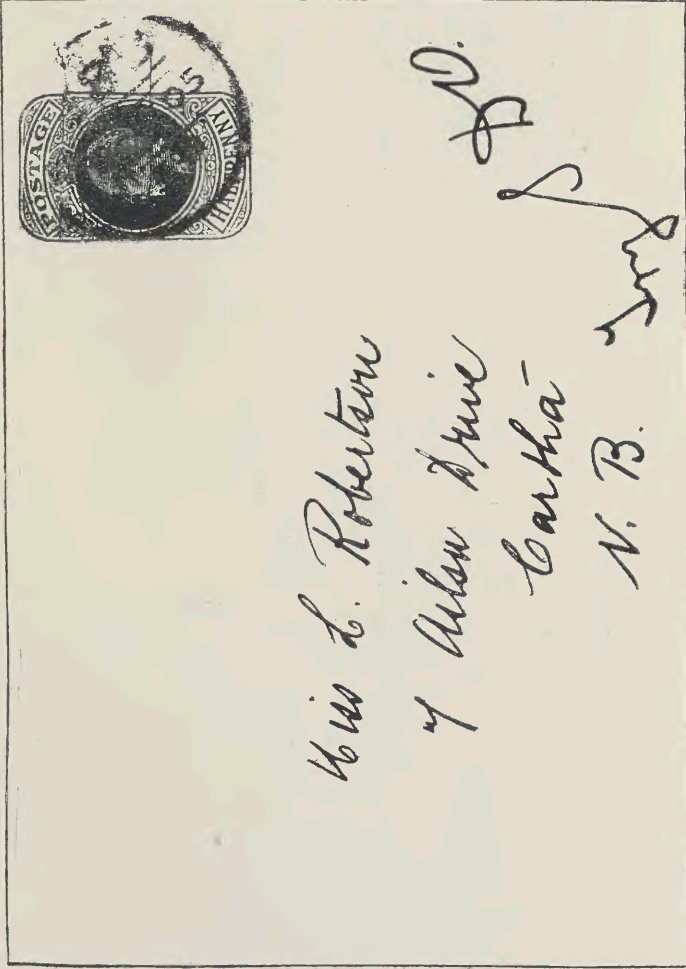 POSTAGE
HALFPENNY
95
Miss L. Robertson
7 Ailsa Drive
Cartha
N. B.